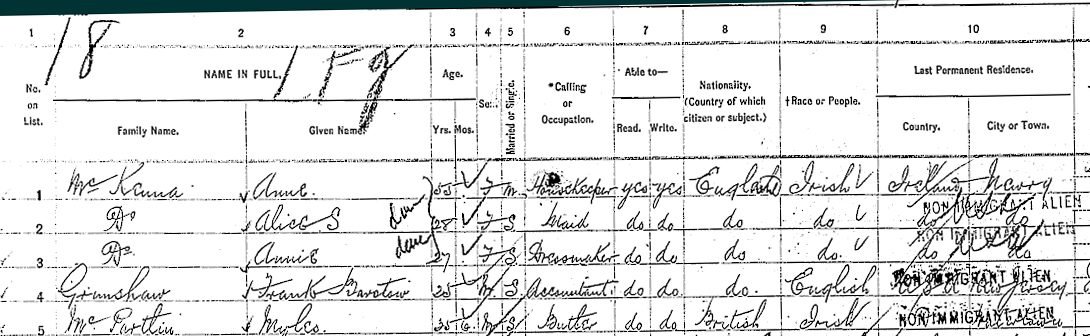 1 2 3 4 5 6 7 8 9 10
18 1 Fg
No. on List. NAME IN FULL. Age. Sex. Married or Single. *Calling or Occupation. Able to— Nationality. (Country of which citizen or subject.) †Race or People. Last Permanent Residence.
Family Name. Given Name. Yrs. Mos. Read. Write. Country. City or Town.
1 McKenna Annie. 55 F M Housekeeper yes yes England Irish Ireland Newry
2 Do Alice S dau 28 F S Maid do do do do NON IMMIGRANT ALIEN
3 Do Annie dau 27 F S Dressmaker do do do do. NON IMMIGRANT ALIEN
4 Grimshaw Frank Barstow 25 M S Accountant do do do. English NON IMMIGRANT ALIEN
5 McPartlin Myles 35 6 M S Butler do do British Irish NON IMMIGRANT ALIEN